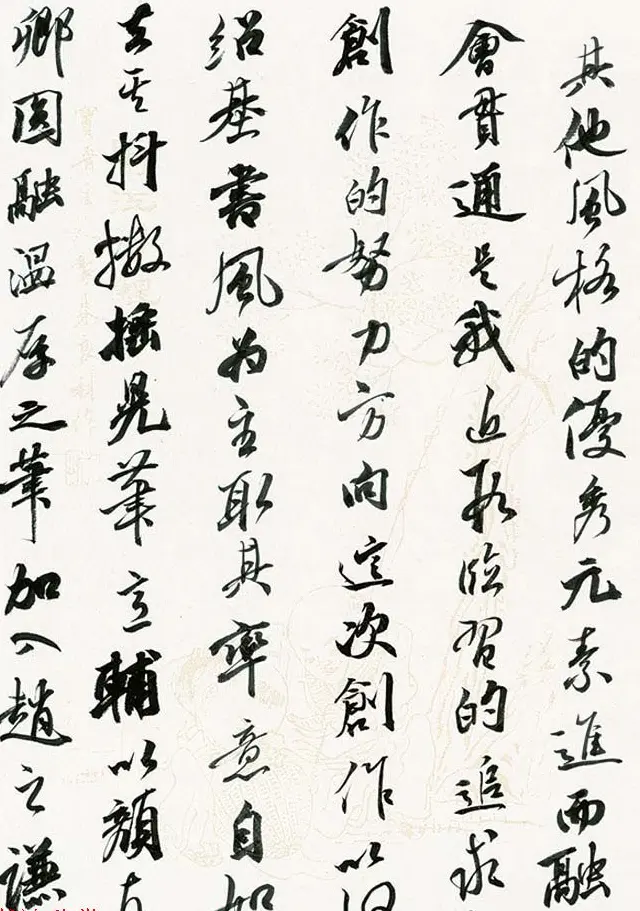 其他風格的優秀元素進而融
會貫通是我近段臨習的追求
創作的努力方向這次創作以何
紹基書風為主取其率意自如
去其抖擻搖晃筆意輔以顏真
卿圓融溫厚之筆加入趙之謙